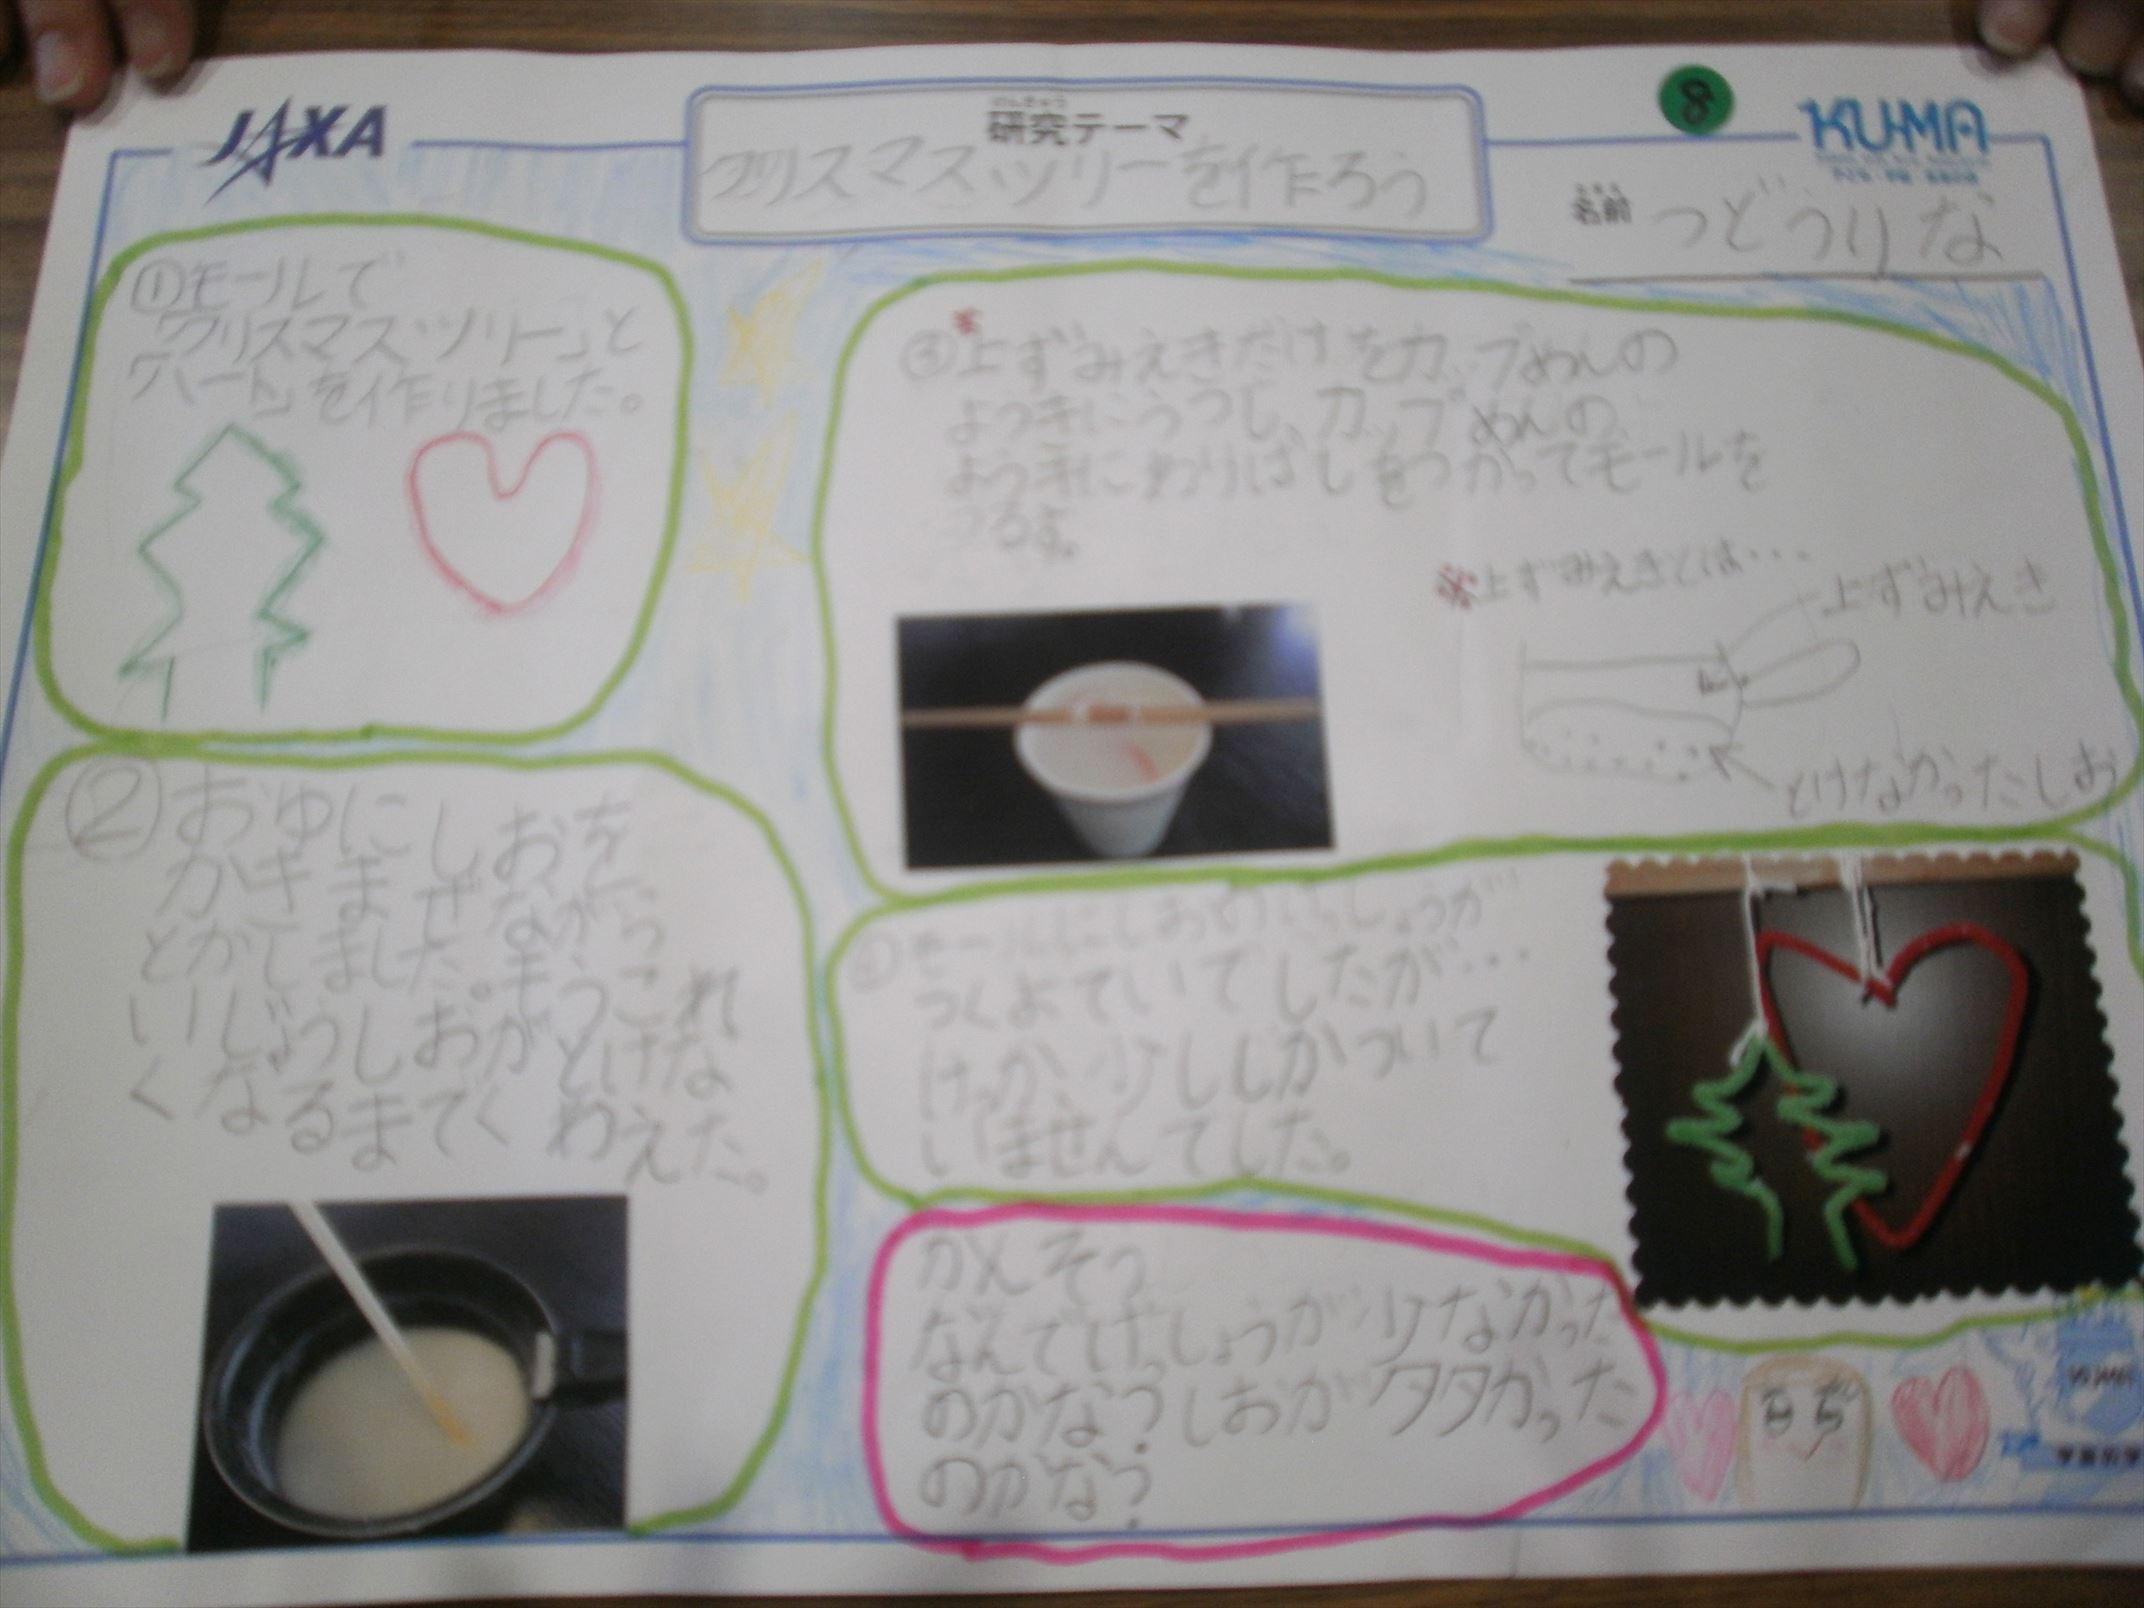 JAXA
研究テーマ
クリスマスツリーを作ろう
8
KU-MA
名前 つどうりな
①モールで
「クリスマスツリー」と
「ハート」を作りました。
②おゆにしおを
かきまぜながら
とかしました。
③上ずみえきだけをカップめんの
ようきにうつし、カップめんの
ようきにわりばしをつかってモールを
つるす。
※上ずみえきとは・・・
上ずみえき
とけなかったしお
④モールにしおのけっしょうが
つくよていでしたが・・・
けっか、少ししかついて
いませんでした。
かんそう
なんでけっしょうが少なかった
のかな？しおが多かった
のかな？